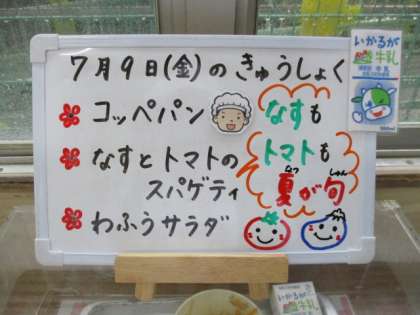 7月9日(金)のきゅうしょく
コッペパン
なすとトマトの
スパゲティ
わふうサラダ
なすも
トマトも
なつ しゅん
夏が旬
いかるが
牛乳
いかるが
牛乳